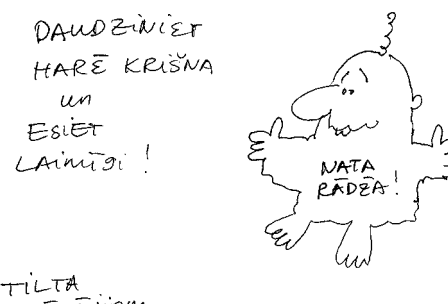 DAUDZINIET
HARĒ KRIŠNA
un
ESIET
LAIMĪGI !
NATA
RĀDŽA!
TILTA